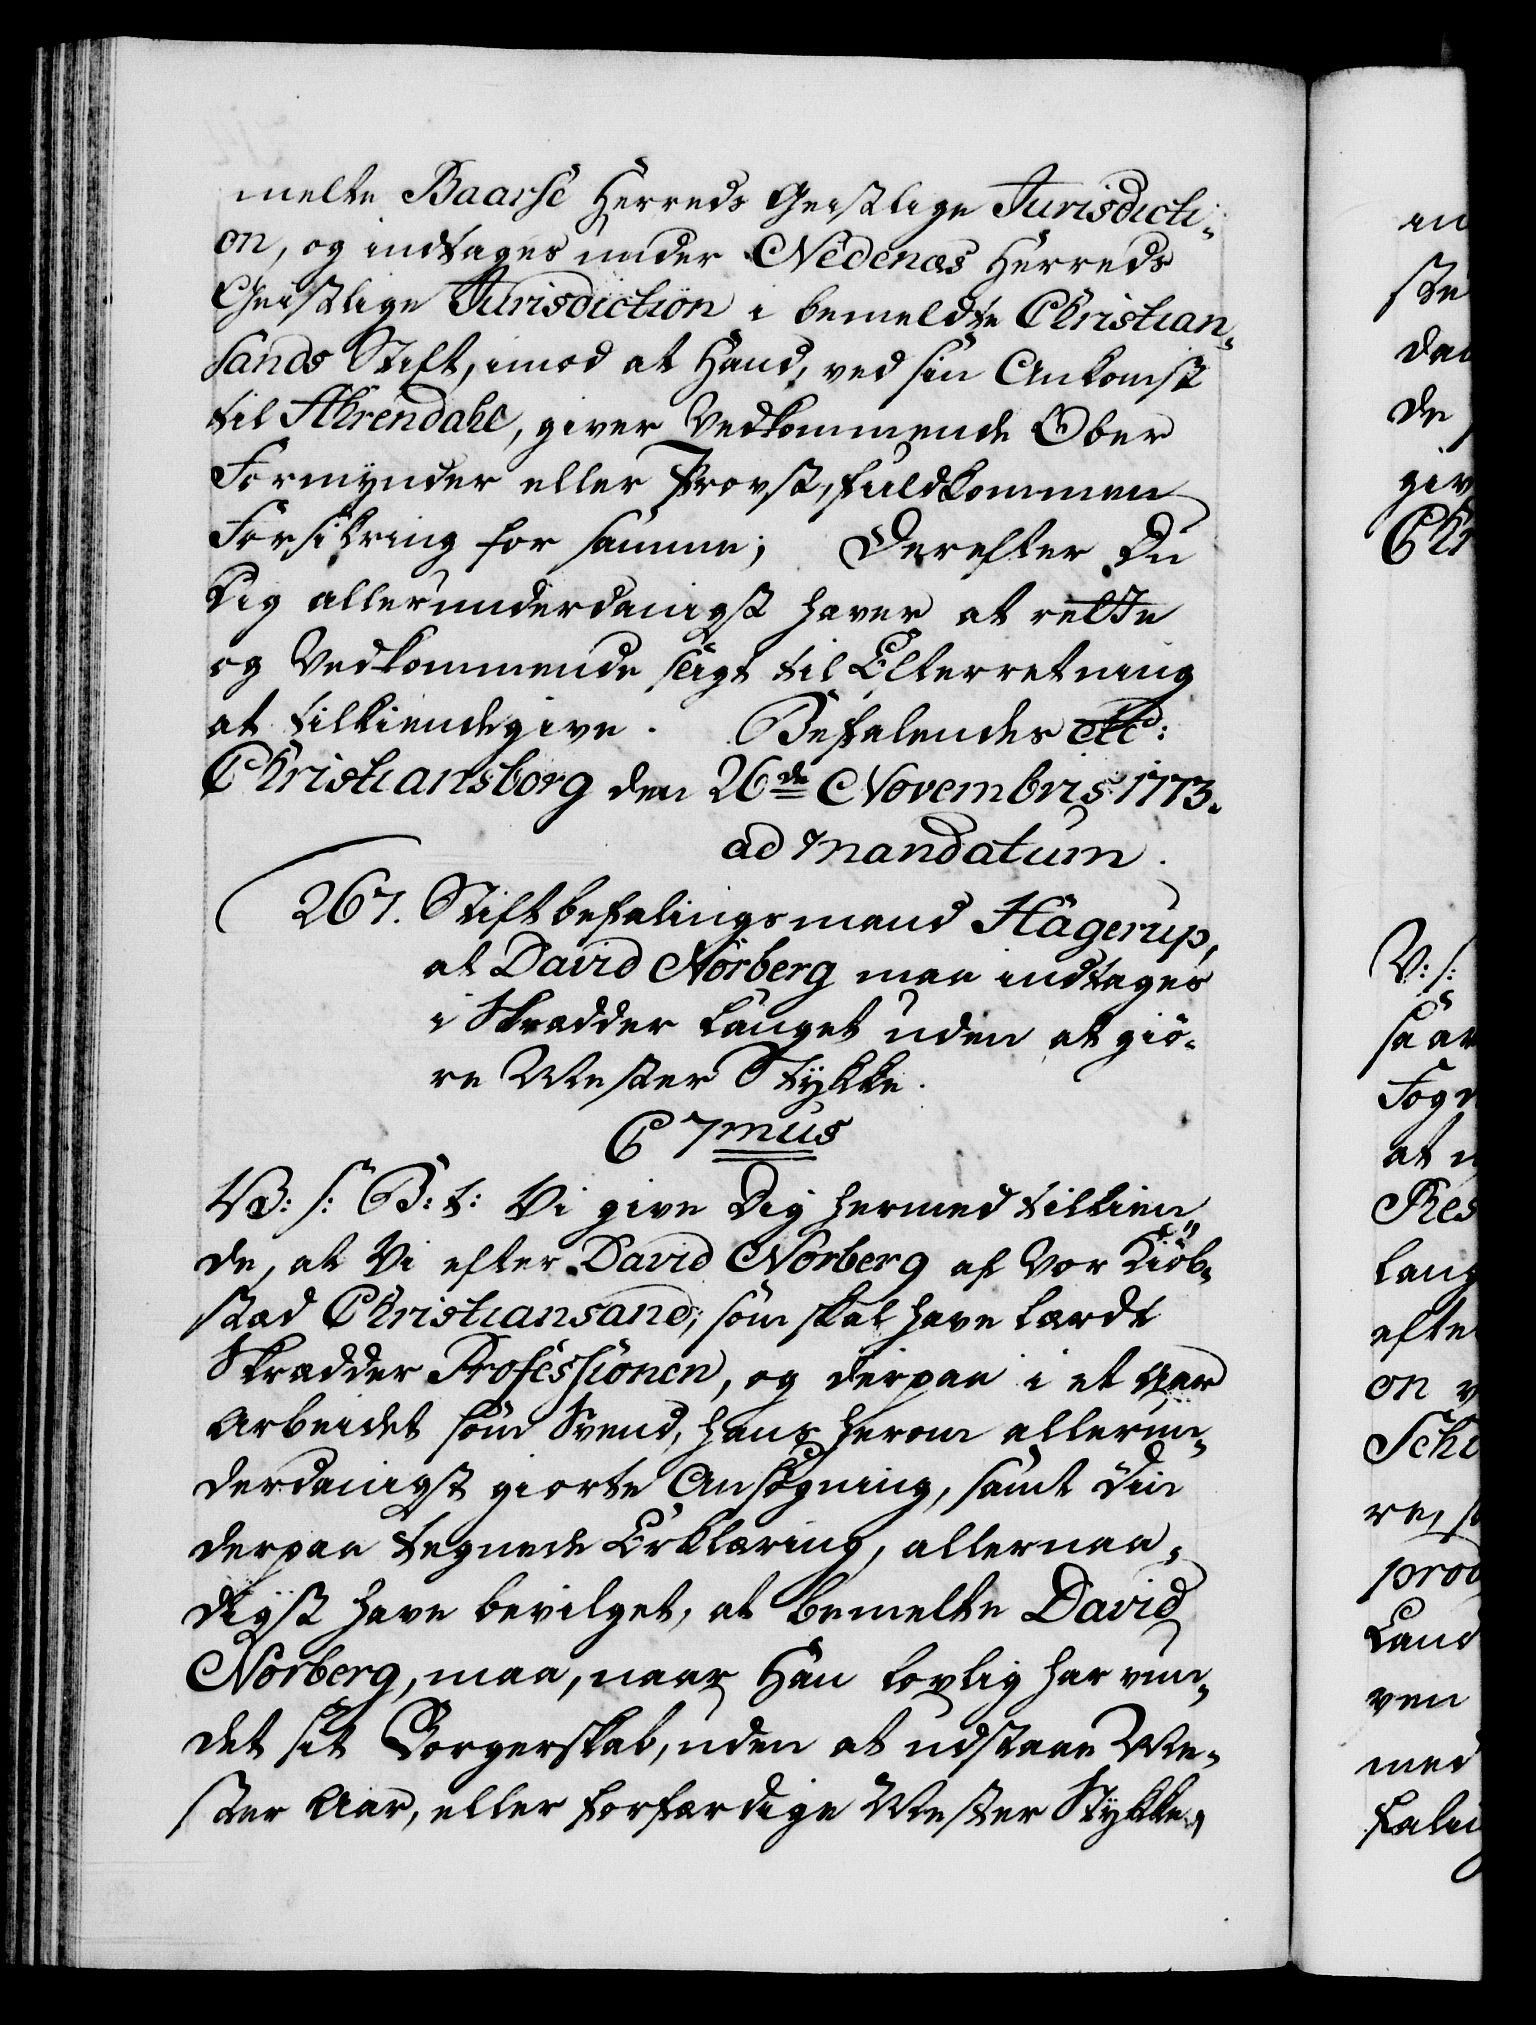 melte Baarse Herreds Geistlige Jurisdicti-
on, og indtages under Nedenæs Herreds
Geistlige Jurisdiction i bemeldte Christian-
sands Stift, imod at Hand, ved sin Ankomst
til Ahrendahl, giver Vedkommende Ober
Formynder eller Provst, fuldkommen
Forsikring for samme; Derefter Du
Dig allerunderdanigst haver at rette
og Vedkommende sligt til Efterretning
at tilkiendegive. Befalendes etc:
Christiansborg den 26de Novembris 1773.
ad mandatum.
267. Stiftbefalingsmand Hagerup,
at David Norberg maa indtages
i Skrædder Lauget uden at giö-
re Mester Stykke.
C 7mus
V: S: G: t: Vi give Dig hermed tilkien
de, at Vi efter David Norberg af Vor Kiöb-
stad Christiansand, som skal have lærdt
Skrædder Professionen, og derpaa i et Aar
arbeidet som Svend, hans herom allerun-
derdanigst giorte Ansøgning, samt Din
derpaa tegnede Erklæring, allernaa-
digst have bevilget, at bemelte David
Norberg, maa, naar Han lovlig har vun-
det sit Borgerskab, uden at udstaae Me-
ster Aar, eller forfærdige Mester Stykke,
in
ste
dan
de
giv
Chr
V: s:
saar
Fogd
at
Res
lang
efte
on
Schi
re,
prod
Land
ven
med